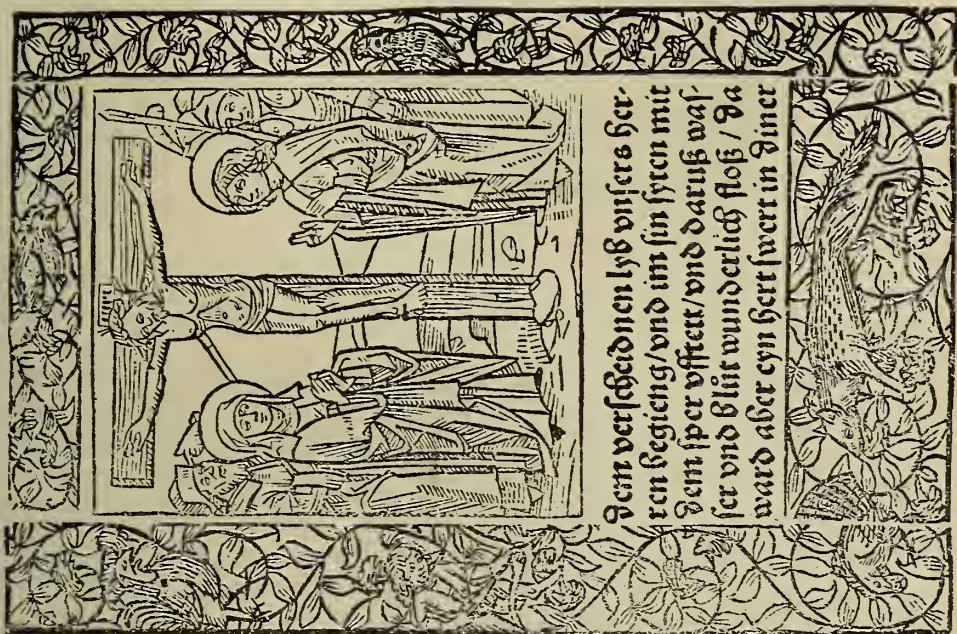 INRI
dem verscheidnen lyb vnsers her-
ren begieng/vnd im sin syten mit
dem sper vfftett/vnd daruß was-
ser vnd blůt wunderlich floß/da
ward aber eyn hertt swert in diner